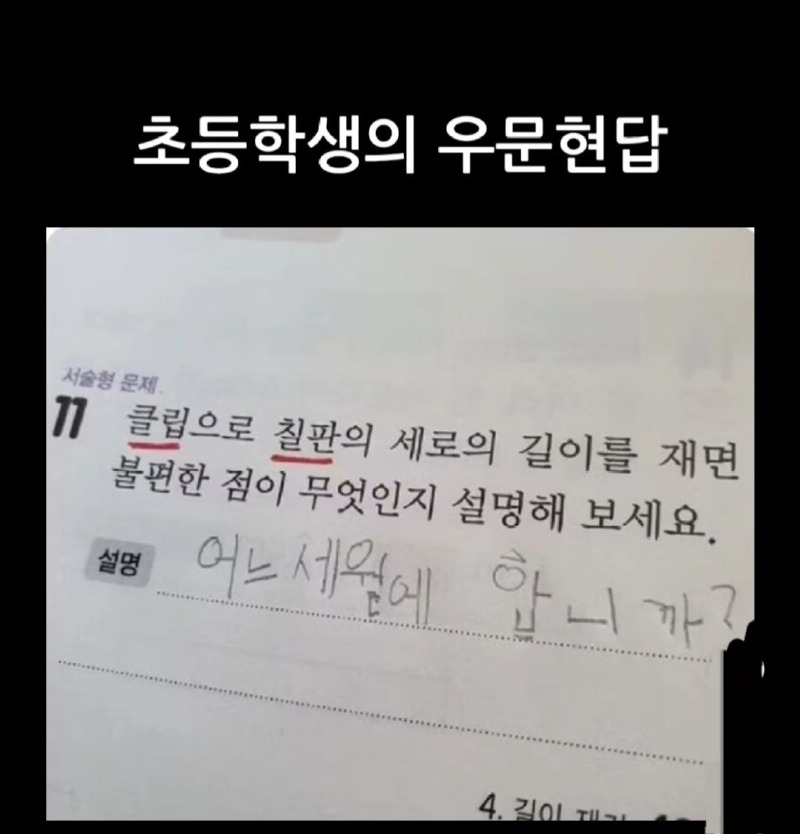 초등학생의 우문현답
서술형 문제
11 클립으로 칠판의 세로의 길이를 재면
불편한 점이 무엇인지 설명해 보세요.
설명 어느 세월에 합니까?
4. 길이 재기